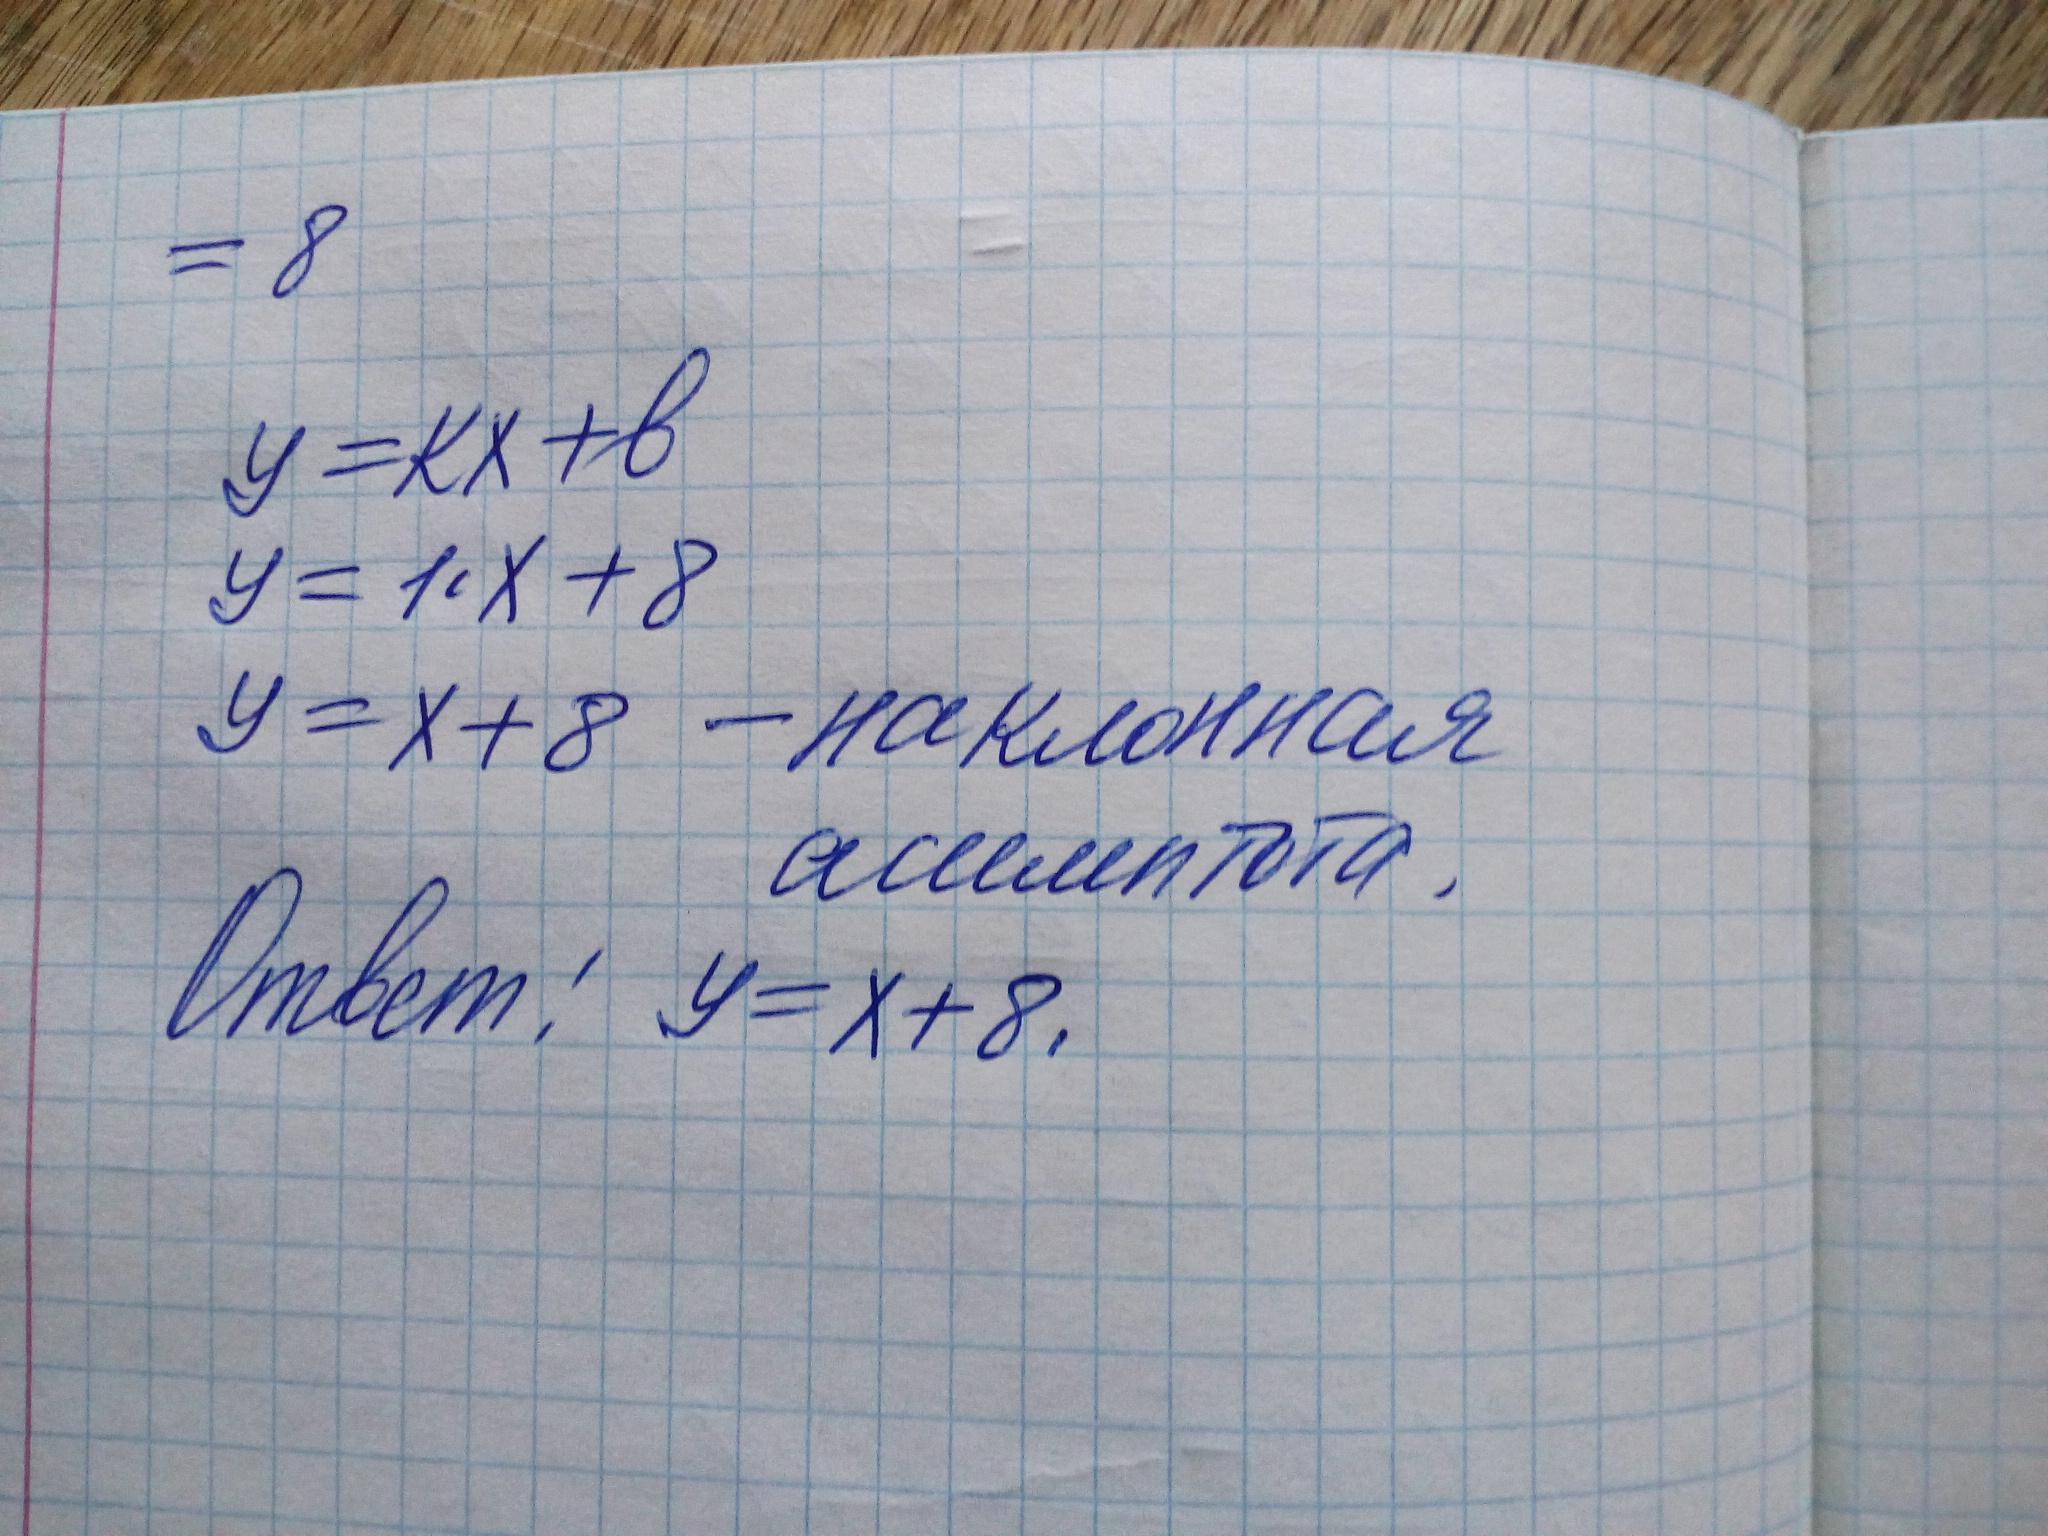 = 8
y = kx + b
y = 1·x + 8
y = x + 8 – наклонная
асимптота.
Ответ: y = x + 8.